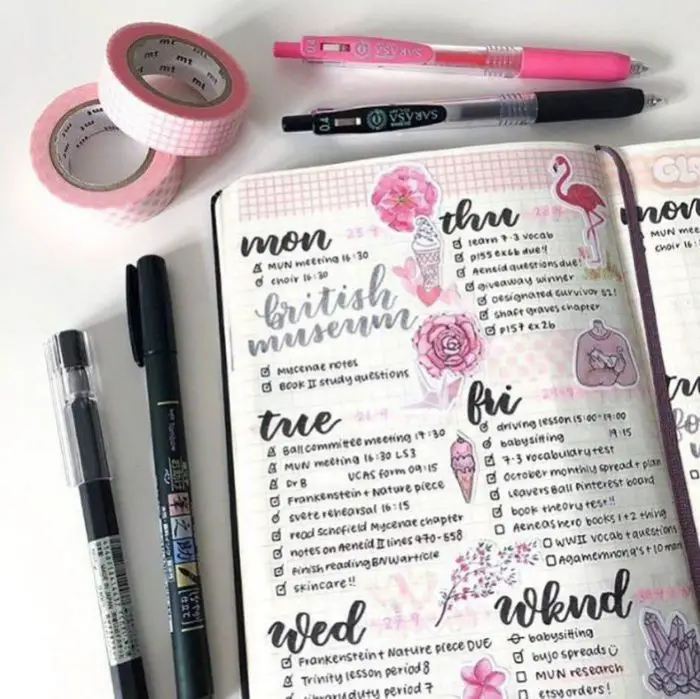 mt
mt
SARASA
0.4
SARASA
0.4
mon
MUN meeting 16:30
choir 16:30
british
museum
Mycenae notes
Book II study questions
tue
Ball committee meeting 17:30
MUN meeting 16:30 LS3
Dr B UCAS form 09:15
Frankenstein + Nature piece
svete rehearsal 16:15
read Schofield Mycenae chapter
notes on Aeneid II lines 470-558
finish reading BNW article
skincare!!
wed
Frankenstein + Nature piece DUE
Trinity lesson period 8
library duty period 7
thu
learn 7-3 vocab
p155 ex6b due!!
Aeneid questions due!
giveaway winner
Designated Survivor S2!
shaft graves chapter
p157 ex 2b
fri
driving lesson 15:00-17:00
babysitting 19:15
7-3 vocabulary test
October monthly spread + plan
Leavers Ball Pinterest board
book theory test!!
Aeneas hero books 1+2 thing
WWII vocab + questions
Agamemnon q's + 10 mark
wknd
babysitting
bujo spreads
MUN research
etsy orders!
mon
MUN mee
choir 16: